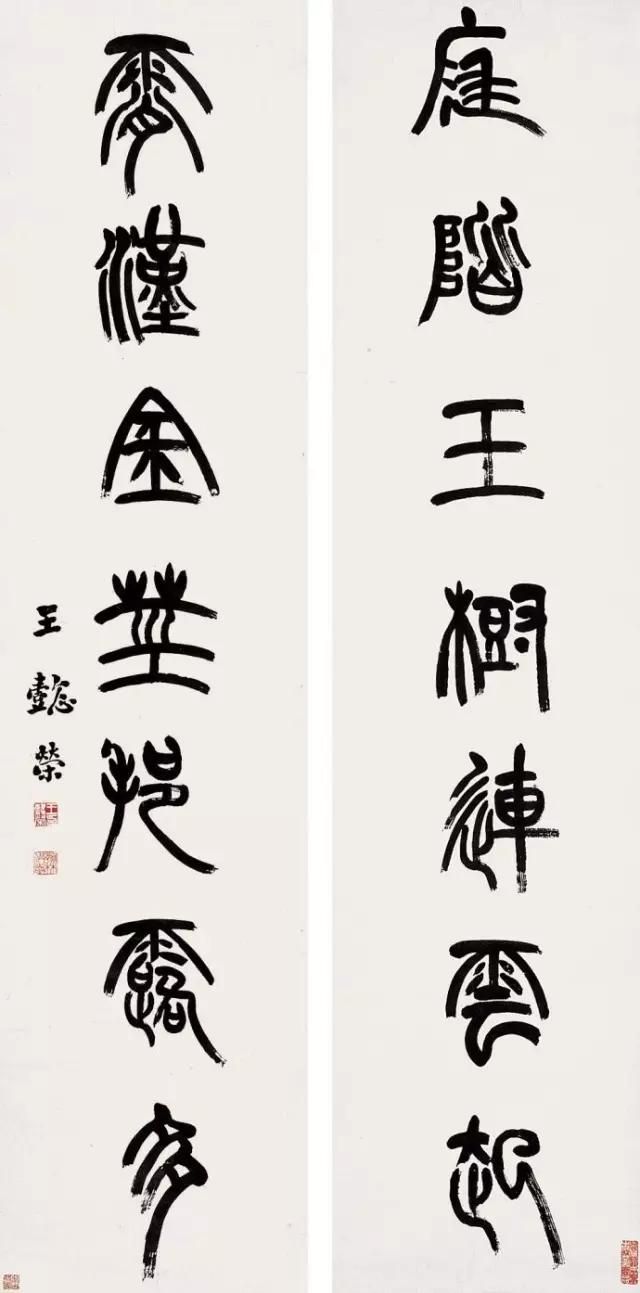 庭階玉樹連雲起
霄漢金莖挹露多
王懿榮